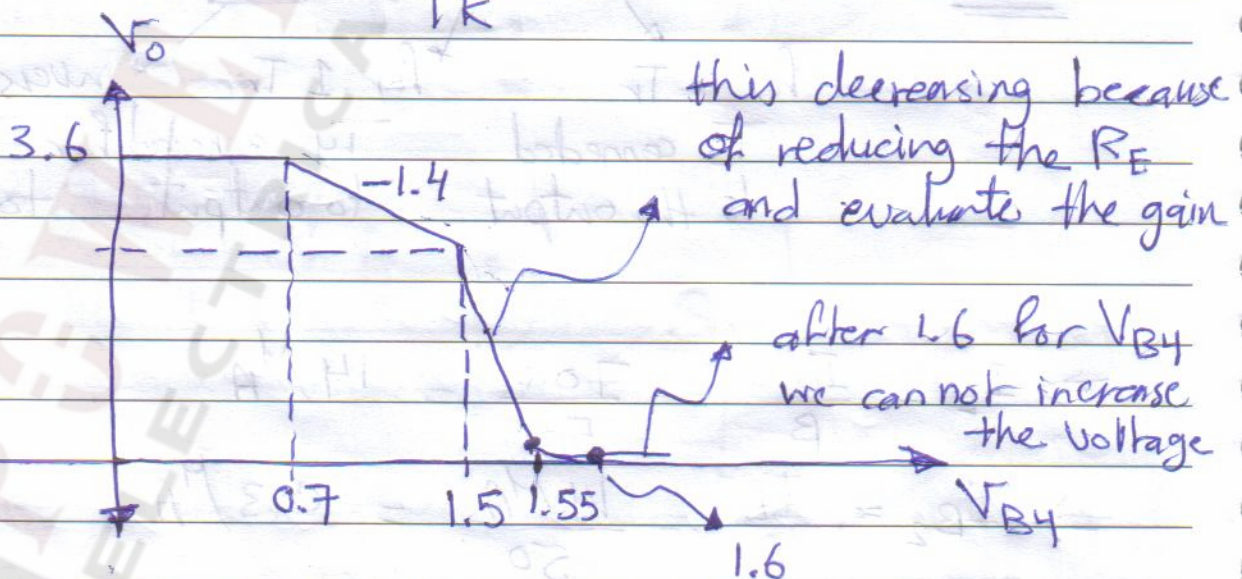 1K
V₀
this decreasing because
3.6
of reducing the RE
-1.4
and evaluate the gain
after 1.6 for VB4
we cannot increase
the voltage
0.7
1.5
1.55
VB4
1.6
ELECTRICA